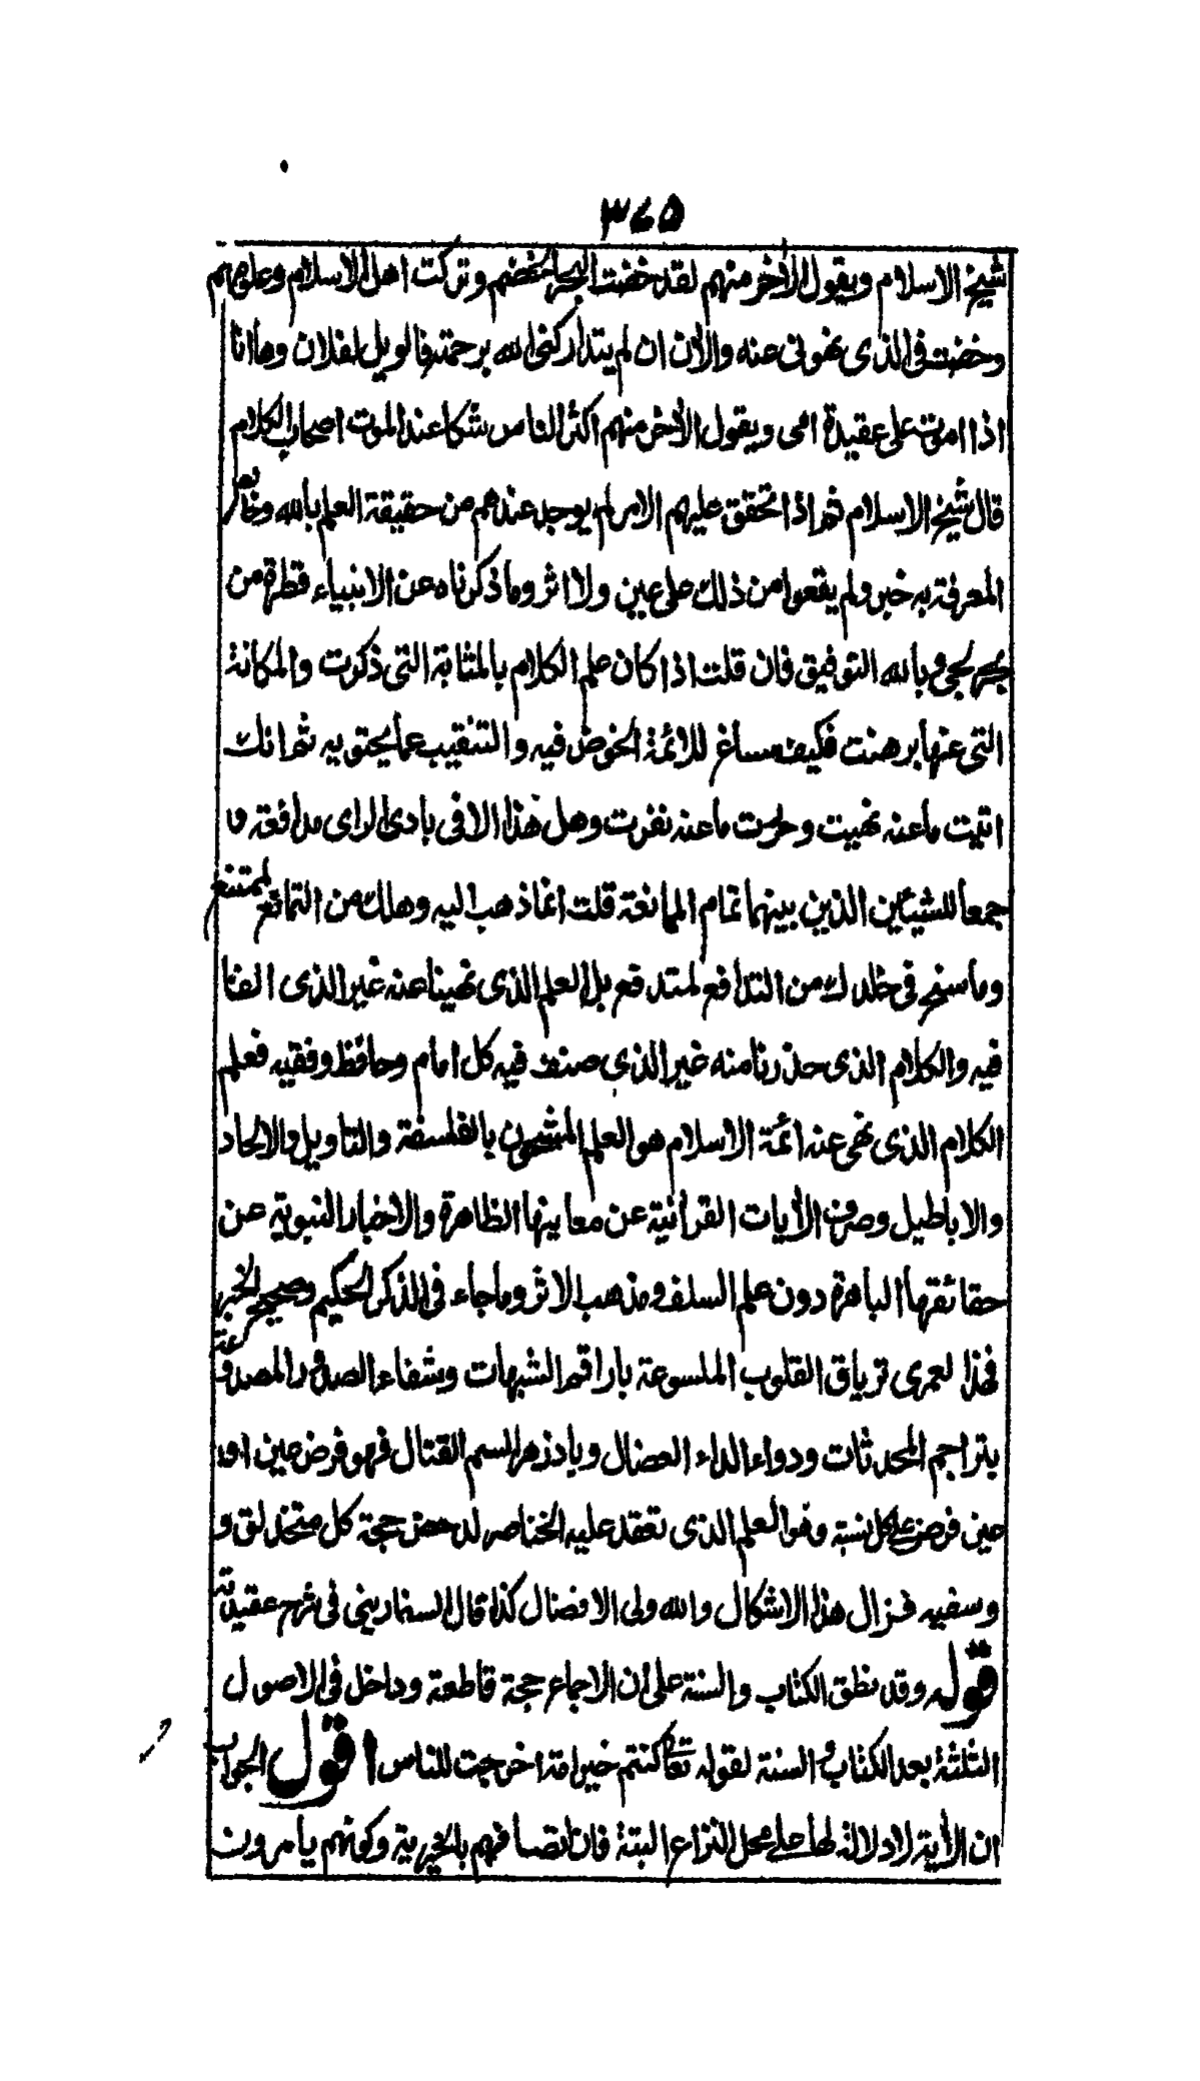 ٣٧٥
شيخ الاسلام ويقول الاٰخر منهم لقد خضت البحر الخضم وتركت اهل الاسلام وعلومهم
وخضت فى الذى نهونى عنه والاٰن ان لم يتداركنى الله برحمته فالويل لفلان وها انا
اذا اموت على عقيدة امى ويقول الاٰخر منهم اكثر الناس شكا عند الموت اصحاب الكلام
قال شيخ الاسلام ثم اذا تحقق عليهم الامر لم يوجد عندهم من حقيقة العلم بالله وخالص
المعرفة به خبر ولم يقعوا من ذلك على عين ولا اثر وما ذكرناه عن الانبياء قطرة من
بحر لجى وبالله التوفيق فان قلت اذا كان علم الكلام بالمثابة التى ذكرت والمكانة
التى عنها برهنت فكيف ساغ للائمة الخوض فيه والتنقيب عما يحتويه ثم انك
اتيت ما عنه نهيت وحررت ما عنه نفرت وهل هذا الا فى بادى الراى مدافعة و
جمعا للشيئين الذين بينهما تمام الممانعة قلت انما ذهب اليه وهلك من التمانع لممتنع
وما سنح فى خلدك من التدافع لمتدفع بل العلم الذى نهينا عنه غير الذى الفنا
فيه والكلام الذى حذرنا منه غير الذى صنف فيه كل امام وحافظ وفقيه فعلم
الكلام الذى نهى عنه ائمة الاسلام هو العلم المشحون بالفلسفة والتاويل والالحاد
والاباطيل وصرف الاٰيات القراٰنية عن معانيها الظاهرة والاخبار النبوية عن
حقائقها الباهرة دون علم السلف ومذهب الاثر وما جاء فى الذكر الحكيم وصحيح الخبر
فهذا لعمرى ترياق القلوب الملسوعة باراقم الشبهات وشفاء الصدور المصدوعة
بتراجم المحدثات ودواء الداء العضال وبادزهر السم القتال فهو فرض عين او
عين فرض على كل نسبة وهو العلم الذى تعقد عليه الخناصر لدحض حجة كل متحذلق و
وسفيه فزال هذا الاشكال والله ولى الافضال كذا قال السفارينى فى شرح عقيدته
قوله وقد نطق الكتاب والسنة على ان الاجماع حجة قاطعة وداخل فى الاصول
الثلثة بعد الكتاب والسنة لقوله تعالى كنتم خير امة اخرجت للناس اقول الجواب
ان الاٰية لا دلالة لها على محل النزاع البتة فان اتصافهم بالخيرية وكونهم يامرون